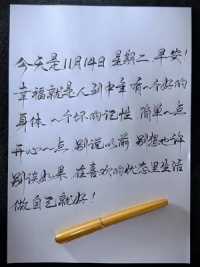 今天是11月14日 星期二 早安!
幸福就是人到中年 有一个好的
身体 一个坏的记性 简单一点
开心一点 别说以前 别想也许
别谈如果 在喜欢的状态里生活
做自己就好!